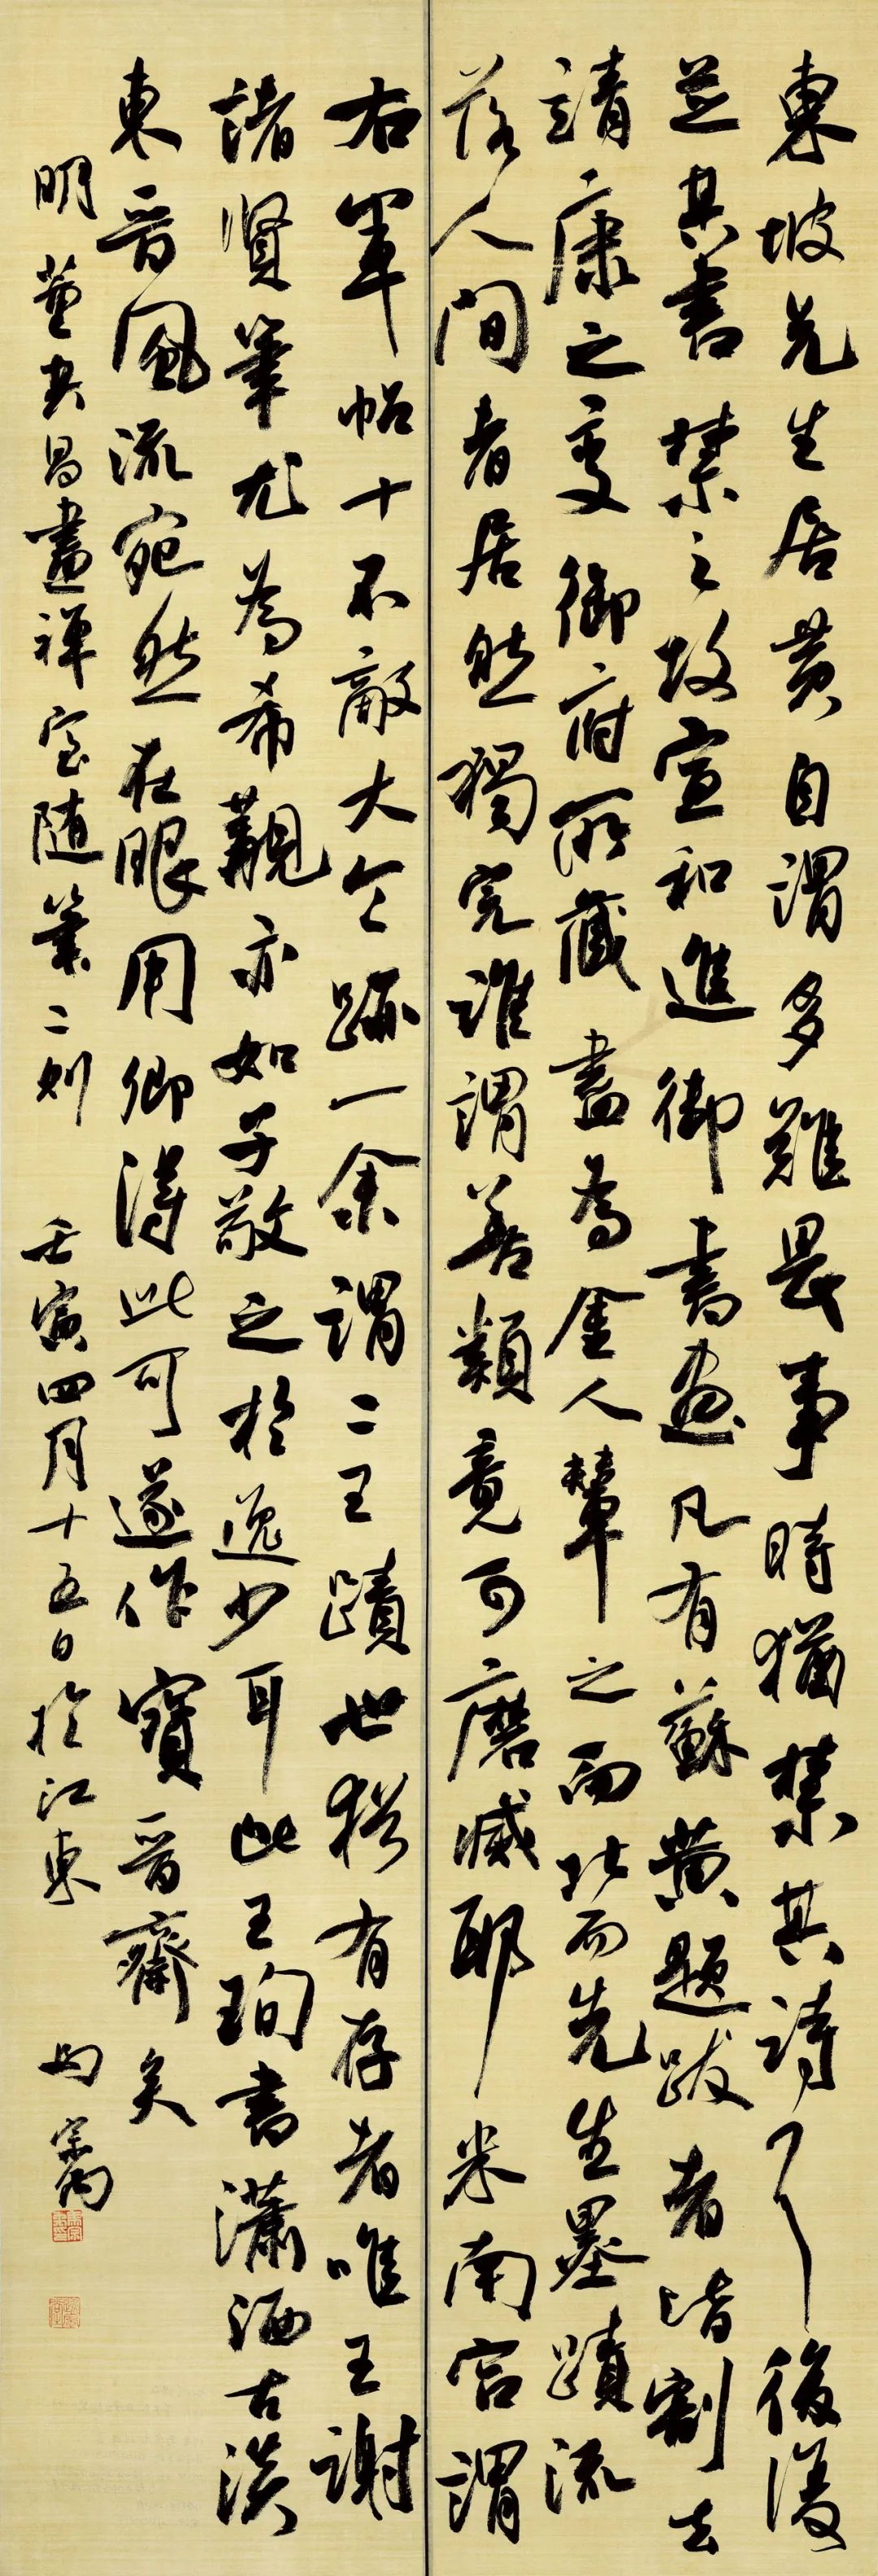 東坡先生居黄自謂多難畏事時猶禁其詩了後復
并其書禁之故宣和進御書畫凡有蘇黄題跋者皆割去
靖康之變御府所藏盡為金人輦之而北而先生墨蹟流
落人間者居然獨完誰謂善類竟可磨滅耶米南宫謂
右軍帖十不敵大令跡一余謂二王蹟世猶有存者唯王謝
諸賢筆尤為希覯亦如子敬之於逸少耳此王珣書瀟洒古淡
東晉風流宛然在眼用卿得此可遂作寶晉齋矣
明董其昌畫禪室随筆二則 壬寅四月十五日於江東